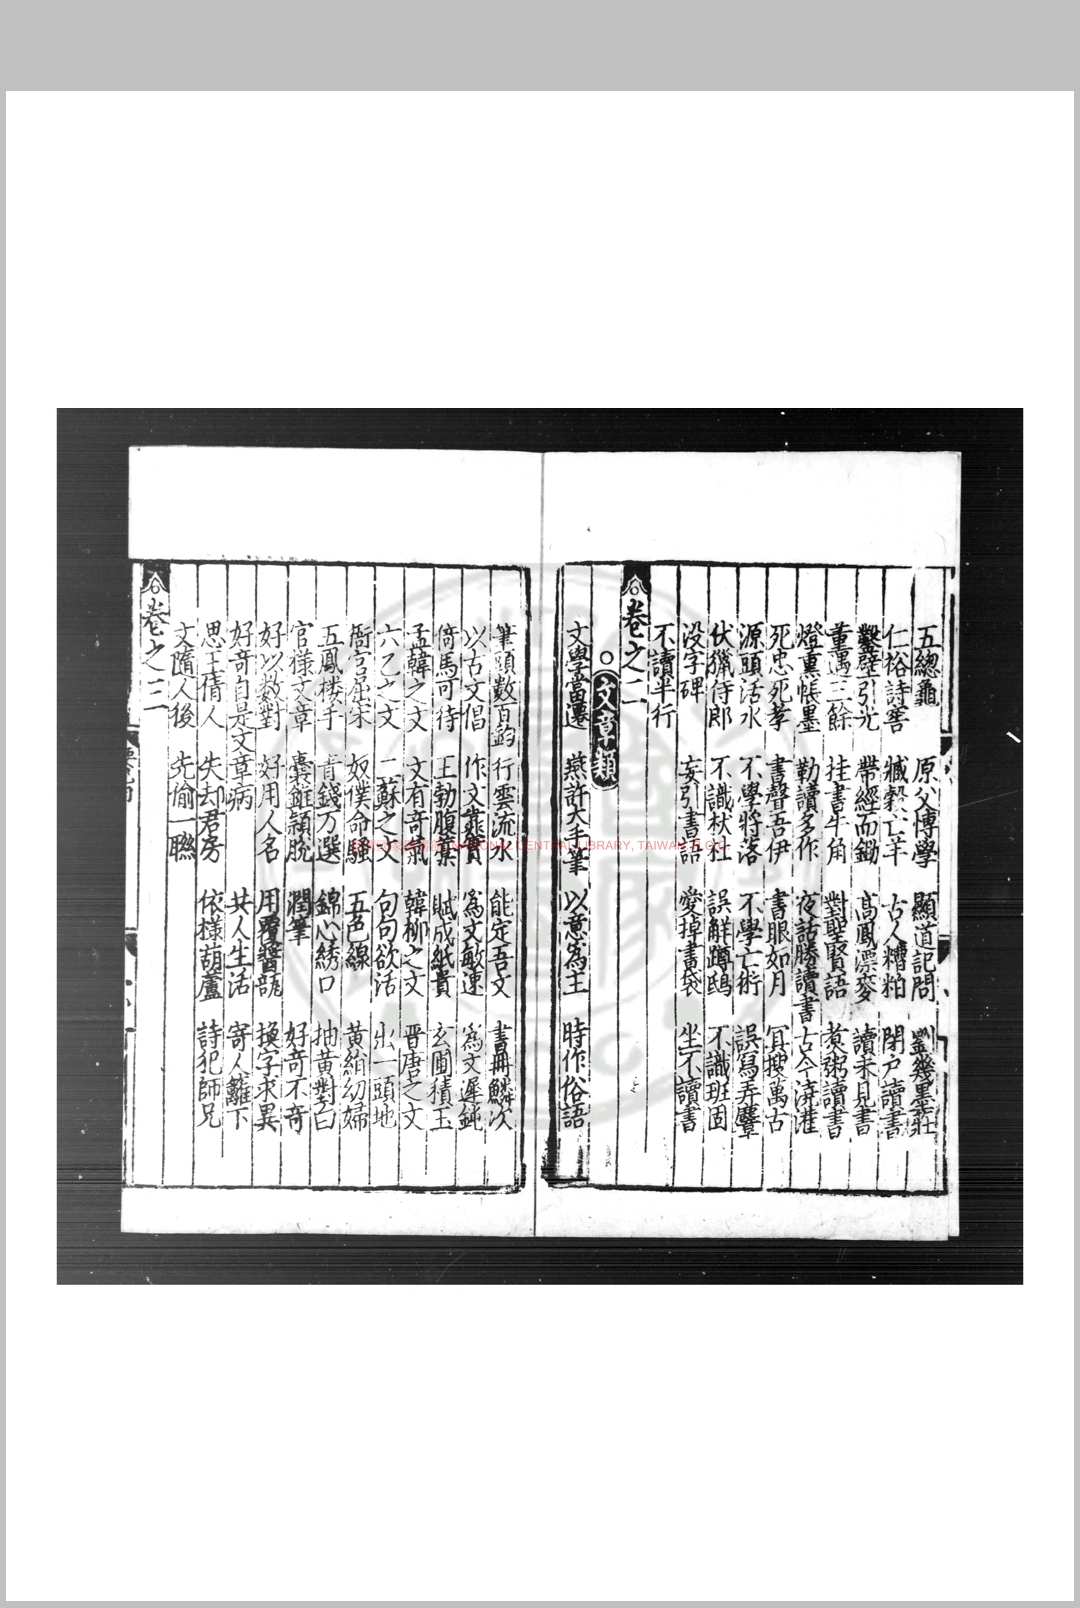 五總龜 原父博學 顯道記問 劉幾墨莊
仁裕詩窖 臧穀亡羊 古人糟粕 閉户讀書
鑿壁引光 帶經而鋤 高鳳漂麥 讀未見書
董遇三餘 挂書牛角 對聖賢語 煮粥讀書
燈熏帳墨 勤讀多作 夜話勝讀書 古今澆灌
死忠死孝 書聲吾伊 書眼如月 冥搜萬古
源頭活水 不學將落 不學亡術 誤寫弄麞
伏獵侍郎 不識杕杜 誤鮮蹲鴟 不識班固
没字碑 妄引書語 愛掉書袋 坐不讀書
不讀半行
卷之二
○文章類
文學當遷 燕許大手筆 以意為主 時作俗語
筆頭數百鈞 行雲流水 能定吾文 書冊鱗次
以古文倡 作文靠實 為文敏速 為文遲鈍
倚馬可待 王勃腹藁 賦成紙貴 玄圃積玉
孟韓之文 文有奇氣 韓柳之文 晋唐之文
六乙之文 二蘇之文 句句欲活 出一頭地
衙官屈宋 奴僕命騷 五色線 黄絹幼婦
五鳳楼手 青錢万選 錦心綉口 抽黄對白
官様文章 囊錐頴脫 潤筆 好奇不奇
好以数對 好用人名 用覆醬瓿 換字求異
好奇自是文章病 共人生活 寄人籬下
思王倩人 失却君房 依様葫蘆 詩犯師兄
文隨人後 先偷一聯
卷之三
國家圖書館 NATIONAL CENTRAL LIBRARY, TAIWAN R.O.C.